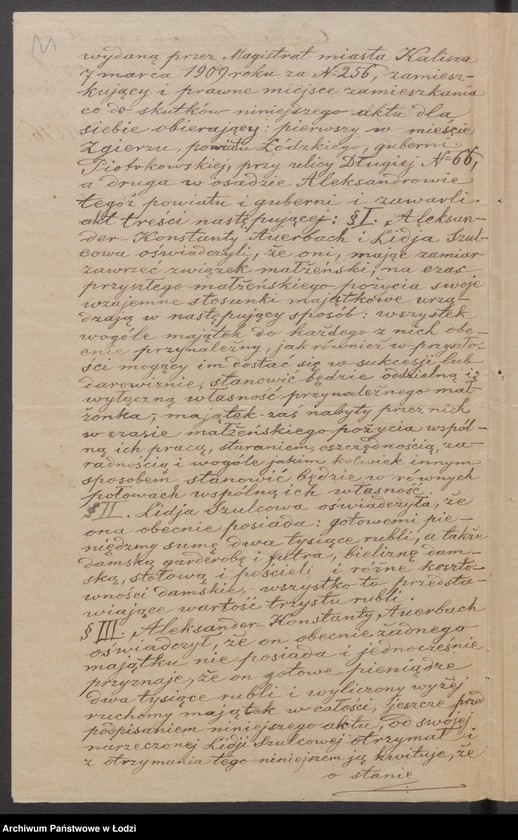 wydaną przez Magistrat miasta Kalisza
7 marca 1909 roku za № 256, zamiesz-
kujący i prawne miejsce zamieszkania
co do skutków niniejszego aktu dla
siebie obierający: pierwszy w mieście
Zgierzu, powiatu Łódzkiego, guberni
Piotrkowskiej, przy ulicy Długiej № 66,
a druga w osadzie Aleksandrowie
tegoż powiatu i guberni i zawarli
akt treści następującej: § I. Aleksan-
der-Konstanty Auerbach i Lidja Szul-
cowa oświadczyli, że oni, mając zamiar
zawrzeć związek małżeński, na czas
przyszłego małżeńskiego pożycia swoje
wzajemne stosunki majątkowe urzą-
dzają w następujący sposób: wszystek
wogóle majątek do każdego z nich obe-
cnie przynależny, jak również w przyszło-
ści mogący im dostać się w sukcesji lub
darowiznie, stanowić będzie oddzielną i
wyłączną własność przynależnego mał-
żonka; majątek zaś nabyty przez nich
w czasie małżeńskiego pożycia wspól-
ną ich pracą, staraniem, oszczędnością, za-
radnością i wogóle jakim kolwiek innym
sposobem stanowić będzie w równych
połowach wspólną ich własność.
§ II. Lidja Szulcowa oświadczyła, że
ona obecnie posiada: gotowemi pie-
niędzmi sumę dwa tysiące rubli, a także
damską garderobę i futra, bieliznę dam-
ską, stołową i pościeli i różne koszto-
wności damskie, wszystko to przedsta-
wiające wartość trzystu rubli.
§ III. Aleksander-Konstanty Auerbach
oświadczył, że on obecnie żadnego
majątku nie posiada i jednocześnie
przyznaje, że on gotowe pieniądze
dwa tysiące rubli i wyliczony wyżej
ruchomy majątek w całości, jeszcze przed
podpisaniem niniejszego aktu, od swojej
narzeczonej Lidji Szulcowej otrzymał i
z otrzymania tego niniejszem ją kwituje, że
o stanie
Archiwum Państwowe w Łodzi